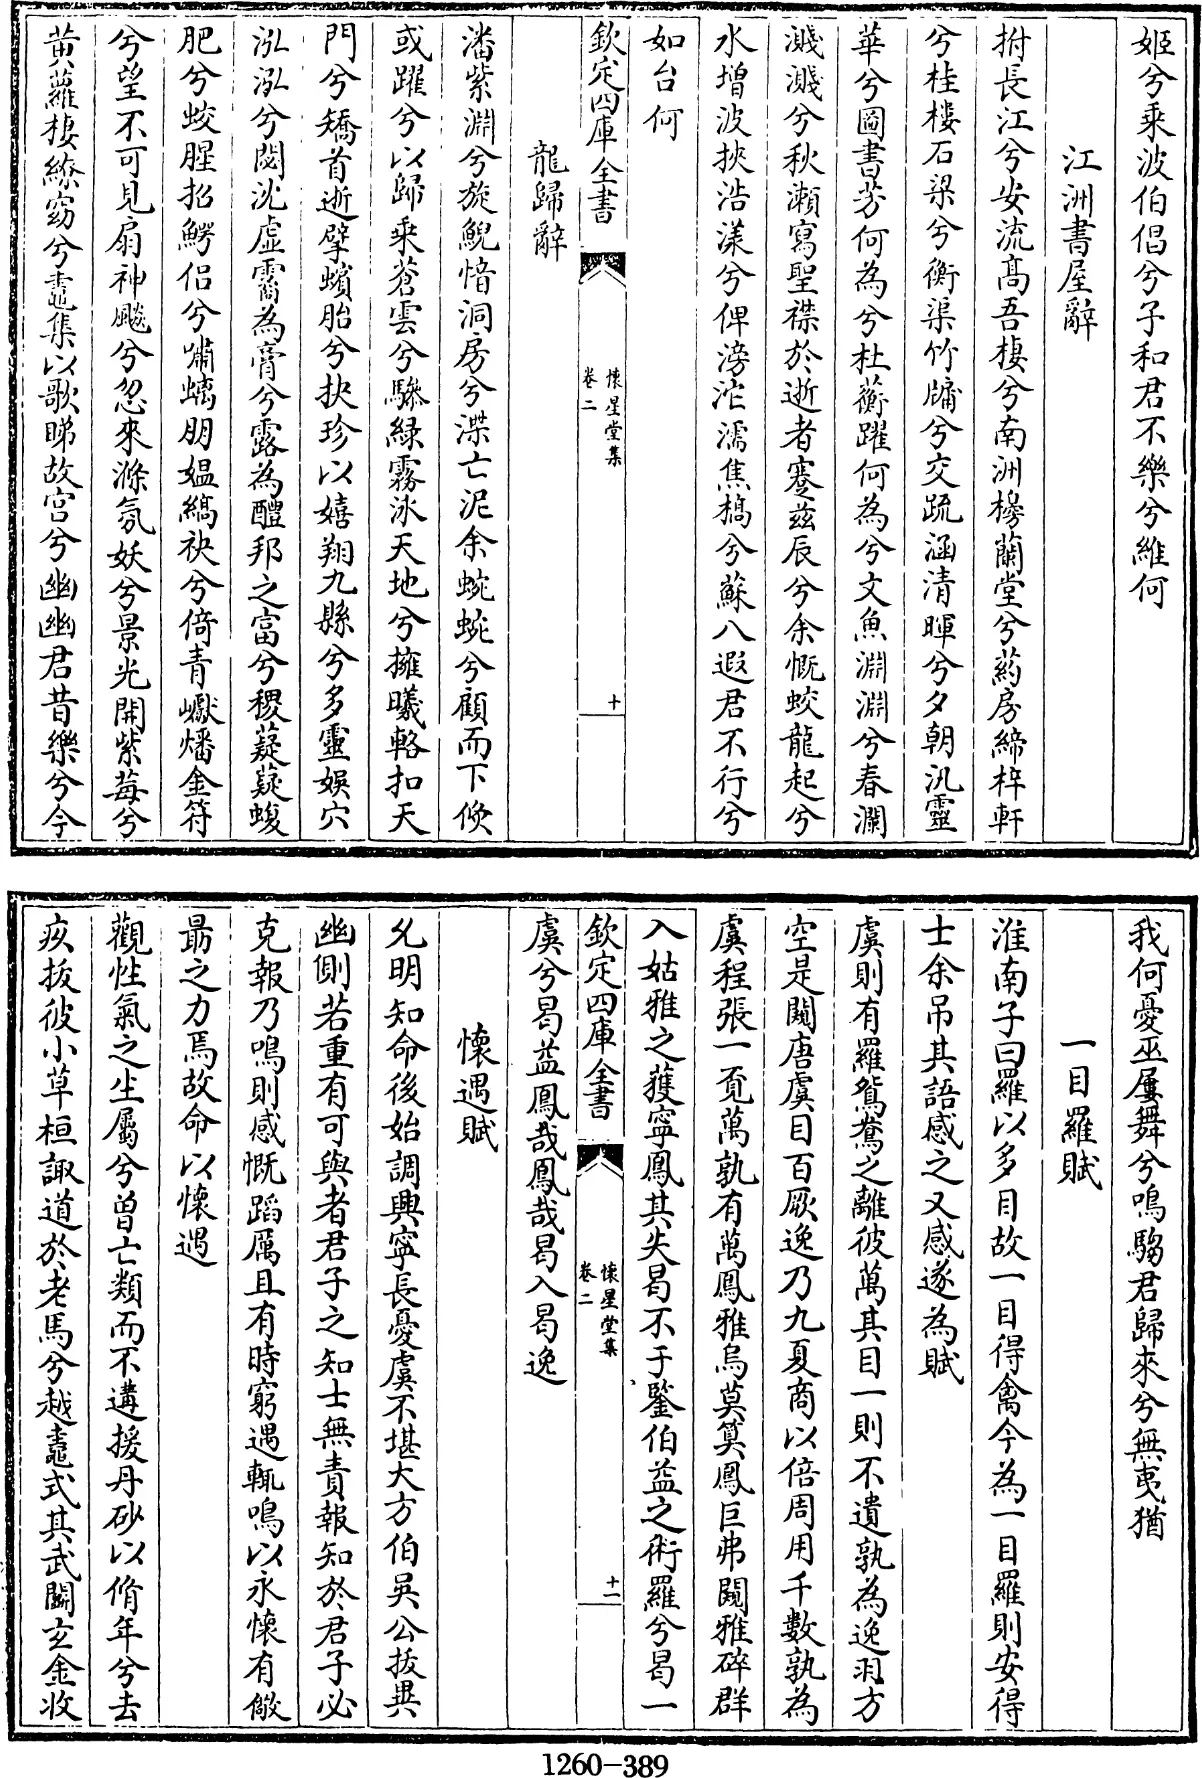 姬兮乘波伯倡兮子和君不樂兮維何
江洲書屋辭
拊長江兮安流髙吾棲兮南洲榜蘭堂兮葯房締梓軒
兮桂樓石梁兮衡渠竹牗兮交䟽涵清暉兮夕朝汎靈
華兮圖書芳何為兮杜蘅躍何為兮文魚淵淵兮春瀾
濺濺兮秋瀨寫聖襟於逝者蹇兹辰兮余慨蛟龍起兮
水增波挾浩漾兮俾滂沱濡焦槁兮蘇八遐君不行兮
如台何
欽定四庫全書
懷星堂集
卷二
十
龍歸辭
潘紫淵兮旋鯢愔洞房兮渫亡泥余蜿蜿兮顧而下倐
或躍兮以歸乘蒼雲兮驂緑霧泳天地兮擁曦輅扣天
門兮矯首逝擘蠙胎兮抉珍以嬉翔九縣兮多靈娛穴
泓泓兮閟沈虛霱為膏兮露為醴邦之富兮稷薿薿蝮
肥兮蛟腥招鰐侣兮嘯螭朋媪縞袂兮倚青巘燔金符
兮望不可見扇神飈兮忽來滌氛妖兮景光開紫莓兮
黄蘿棲繚窈兮鼃集以歌睇故宫兮幽幽君昔樂兮今
我何憂巫屢舞兮鳴騶君歸來兮無夷猶
一目羅賦
淮南子曰羅以多目故一目得禽今為一目羅則安得
士余吊其語感之又感遂為賦
虞則有羅鴛鴦之離彼萬其目一則不遺孰為逸羽方
空是闚唐虞目百厥逸乃九夏商以倍周用千數孰為
虞程張一覔萬孰有萬鳳雅烏莫算鳳巨弗闚雅碎群
入姑雅之蒦寧鳳其失曷不于鑒伯益之術羅兮曷一
欽定四庫全書
懷星堂集
卷二
十一
虞兮曷益鳳哉鳳哉曷入曷逸
懷遇賦
允明知命後始調興寧長憂虞不堪大方伯吳公拔畀
幽側若重有可與者君子之知士無責報知於君子必
克報乃鳴則感慨蹈厲且有時窮遇輒鳴以永懷有儆
勗之力焉故命以懷遇
觀性氣之生屬兮曽亡類而不遘援丹砂以脩年兮去
疢拔彼小草桓諏道於老馬兮越鼃式其武闘玄金收
1260-389